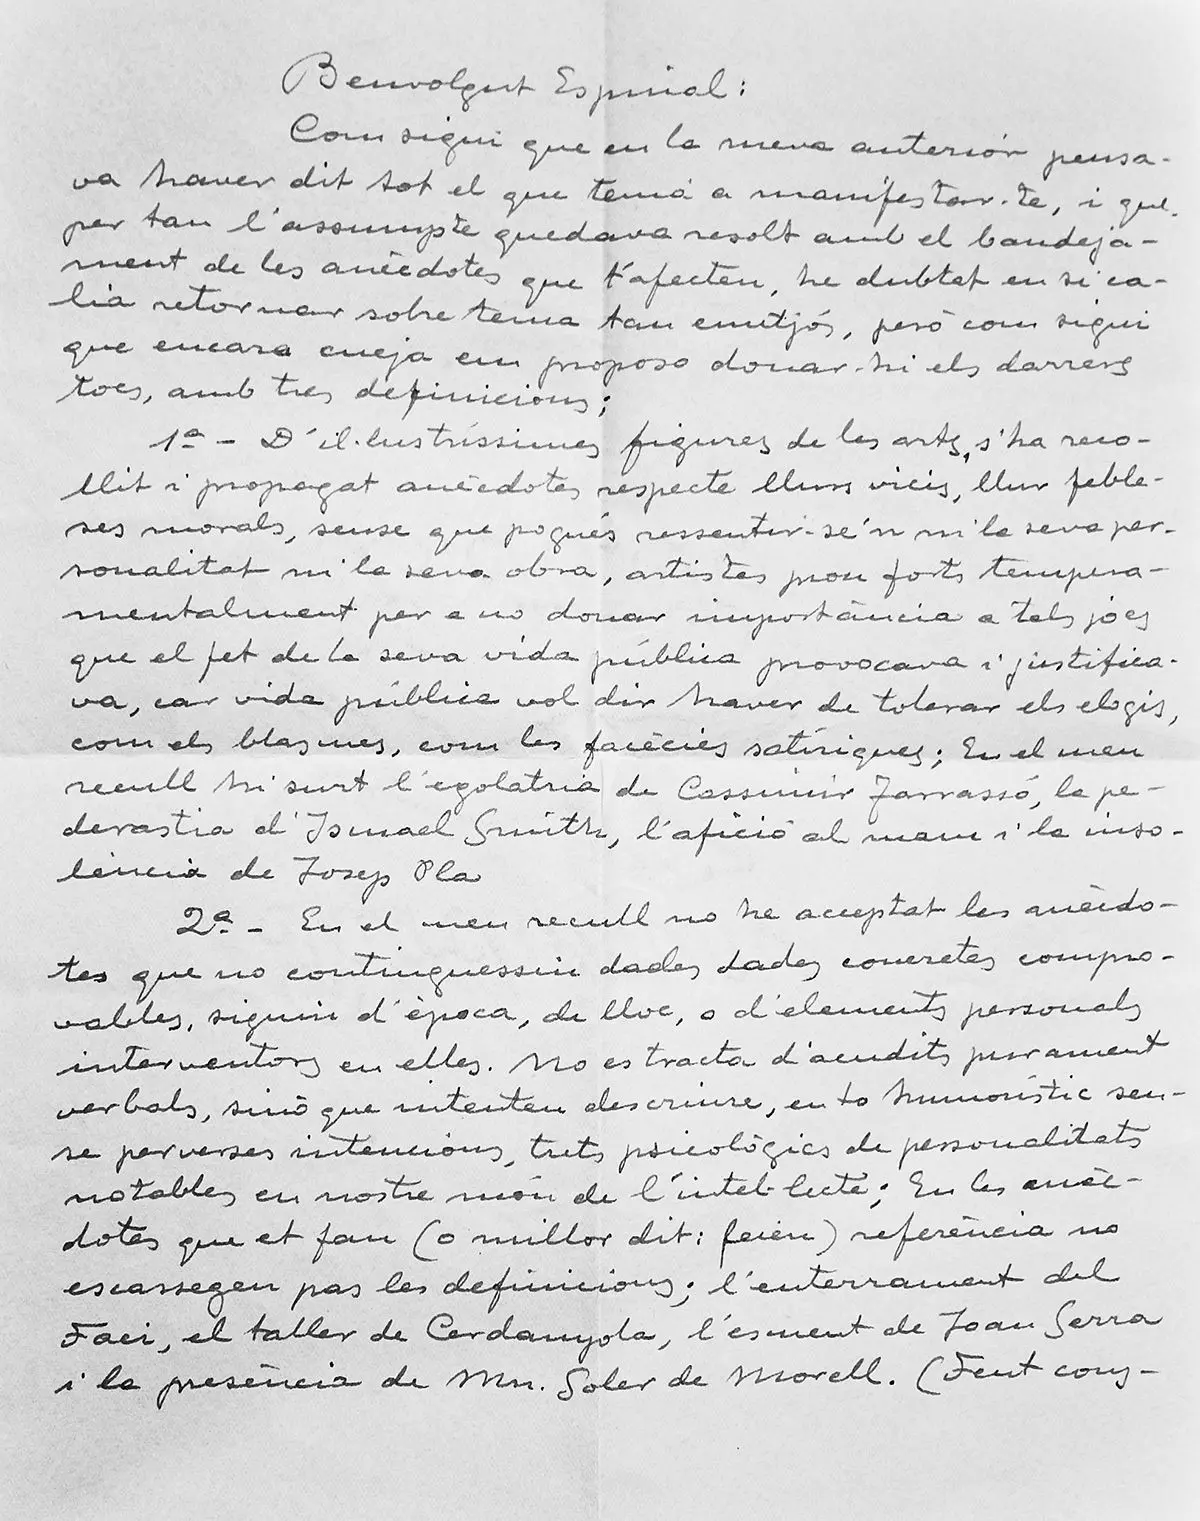 Benvolgut Espinal:
Com sigui que en la meva anterior pensa-
va haver dit tot el que tenia a manifestar-te, i que
per tan l'assumpte quedava resolt amb el bandeja-
ment de les anècdotes que t'afecten, he dubtat en si ca-
lia retornar sobre tema tan emitjós, però com sigui
que encara cueja em proposo donar-hi els darrers
tocs, amb tres definicions;
1ª - D'il·lustríssimes figures de les arts, s'ha reco-
llit i propagat anècdotes respecte llurs vicis, llur feble-
ses morals, sense que pogués ressentir-se'n ni la seva per-
sonalitat ni la seva obra, artistes prou forts tempera-
mentalment per a no donar importància a tals jocs
que el fet de la seva vida pública provocava i justifica-
va, car vida pública vol dir haver de tolerar els elogis,
com els blasmes, com les facècies satíriques; En el meu
recull hi surt l'egolatria de Cassimir Tarrassó, la pe-
derastia d'Ismael Smith, l'afició al mam i la inso-
lència de Josep Pla
2ª - En el meu recull no he acceptat les anècdo-
tes que no continguessin dades dades concretes compro-
vables, siguin d'època, de lloc, o d'elements personals
interventors en elles. No es tracta d'acudits purament
verbals, sinó que intenten descriure, en to humorístic sen-
se perverses intencions, trets psicològics de personalitats
notables en nostre món de l'intel·lecte; En les anèc-
dotes que et fan (o millor dit: feien) referència no
escassegen pas les definicions; l'enterrament del
Faci, el taller de Cerdanyola, l'esment de Joan Serra
i la presència de Mn. Soler de Morell. (Fent cons-